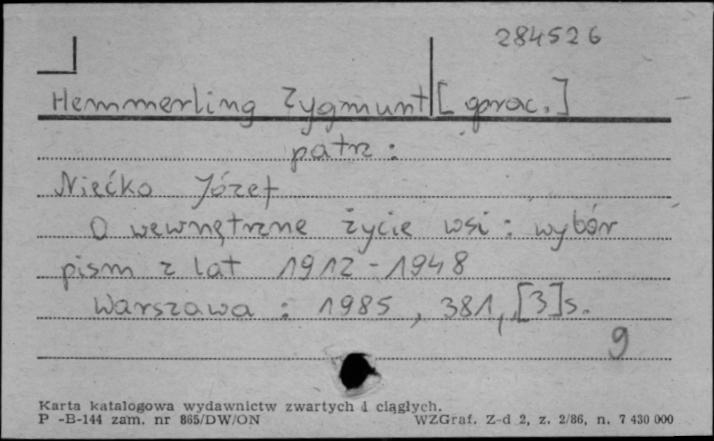 284526
Hemmerling Zygmunt [oprac.]
patrz:
Niećko Józef
O wewnętrzne życie wsi: wybór
pism z lat 1912-1948
Warszawa: 1985, 381, [3]s.
9
Karta katalogowa wydawnictw zwartych i ciągłych.
P -B-144 zam. nr 865/DW/ON WZGraf. Z-d 2, z. 2/86, n. 7 430 000